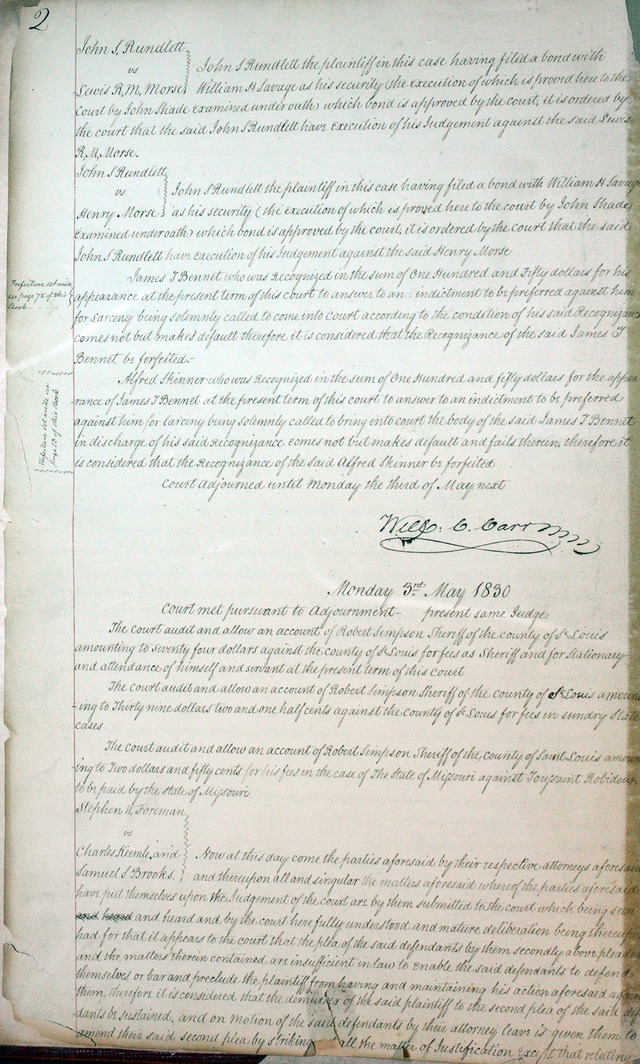 2
John S, Rundlett
vs
Lewis R, M, Morse
John S Rundlett the plaintiff in this case having filed a bond with
William H Savage as his security (the execution of which is proved here to the
Court by John Shade examined under oath) which bond is approved by the court, it is ordered by
the court that the said John S Rundlett have execution of his Judgement against the said Lewis
R, M, Morse.
John S Rundlett
vs
Henry Morse
John S Rundlett the plaintiff in this case having filed a bond with William H Savage
as his security (the execution of which is proved here to the court by John Shade
examined under oath) which bond is approved by the court, it is ordered by the court that the said
John S Rundlett have execution of his Judgement against the said Henry Morse
see page 75 of this
Book
James T Bennet who was Recognized in the sum of One Hundred and Fifty dollars for his
appearance at the present term of this court to answer to an indictment to be preferred against him
for Larceny being solemnly called to come into Court according to the condition of his said Recognizance
comes not but makes default therefore it is considered that the Recognizance of the said James T
Bennet be forfeited.-
page 75 of this Book
Alfred Skinner who was Recognized in the sum of One Hundred and fifty dollars for the appea
rance of James T Bennet at the present term of this court to answer to an indictment to be preferred
against him for Larceny being solemnly called to bring into court the body of the said James T Bennet
in discharge of his said Recognizance comes not but makes default and fails therein, therefore it
is considered that the Recognizance of the said Alfred Skinner be forfeited
Court Adjourned until Monday the third of May next
Will: C. Carr
Monday 3rd May 1830
Court met pursuant to Adjournment present same Judge
The Court audit and allow an account of Robert Simpson Sheriff of the county of St Louis
amounting to Seventy four dollars against the county of St Louis for fees as Sheriff and for stationary
and attendance of himself and servant at the present term of this court
The Court audit and allow an account of Robert Simpson Sheriff of the county of St Louis amoun
ing to Thirty nine dollars two and one half cents against the County of St Louis for fees in sundry State
cases
The Court audit and allow an account of Robert Simpson Sheriff of the county of Saint Louis amoun
ing to Two dollars and fifty cents for his fees in the case of The State of Missouri against Toussaint Robidoux
to be paid by the state of Missouri
Stephen W, Foreman
vs
Charles Keemle, and
Samuel S Brooks.
Now at this day come the parties aforesaid by their respective attorneys aforesaid
and thereupon all and singular the matters aforesaid where of the parties aforesaid
have put themselves upon the Judgement of the court are by them submitted to the court which being seen
and heard and heard and by the court here fully understood and mature deliberation being thereupon
had for that it appears to the court that the plea of the said defendants by them secondly above pleaded
and the matters therein contained are insufficient in law to enable the said defendants to defend
themselves or bar and preclude the plaintiff from having and maintaining his action aforesaid against
them, therefore it is considered that the demurrer of the said plaintiff to the second plea of the said defen
dants be sustained, and on motion of the said defendants by their attorney leave is given them to
amend their said second plea by striking all the matter of Justification except that relating